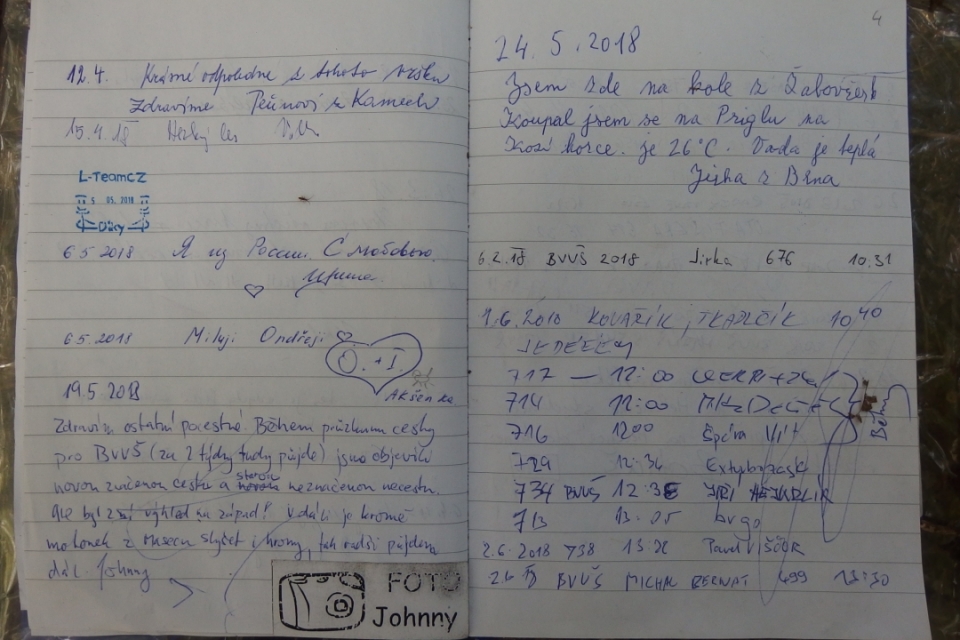 12.4. Krásné odpoledne z tohoto vršku
Zdravíme
15.4.18 Hezký les
L-TEAMCZ
5 05. 2018
Díky
6 5 2018 Я из России. С любовью.
6 5 2018 Miluji Ondřeji
O. + I.
19.5 2018
Zdravím ostatní pocestné. Během průzkumu cesty
pro BVVŠ (za 2 týdny tudy půjde) jsme objevili
novou značenou cestu a starou neznačenou necestu.
Ale byl výhled na západ! V dáli je kromě
motorek z slyšet i hromy, tak radši půjdem
dál. Johnny
FOTO
Johnny
4
24. 5. 2018
Jsem zde na kole z Žabovřesk
Koupal jsem se na Priglu na
Kozí horce. je 26°C. Voda je teplá
Jirka z Brna
6.2.18 BVVŠ 2018 Jirka 676 10.31
1.6.2018 KOVAŘÍK, TKADLČÍK 10 40
717 — 12:00
714 12:00
716 12 00 Špéra Vít
729 12:34
734 BVVŠ 12:35 JIŘÍ
713 13.05
2.6.2018 738 Pavel
BVVŠ MICHAL BERNAT 499 13:30